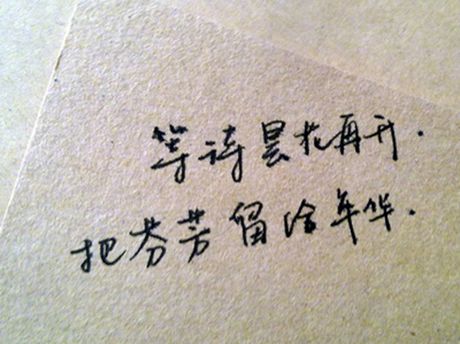 等诗昙花再开.
把芬芳留给年华.